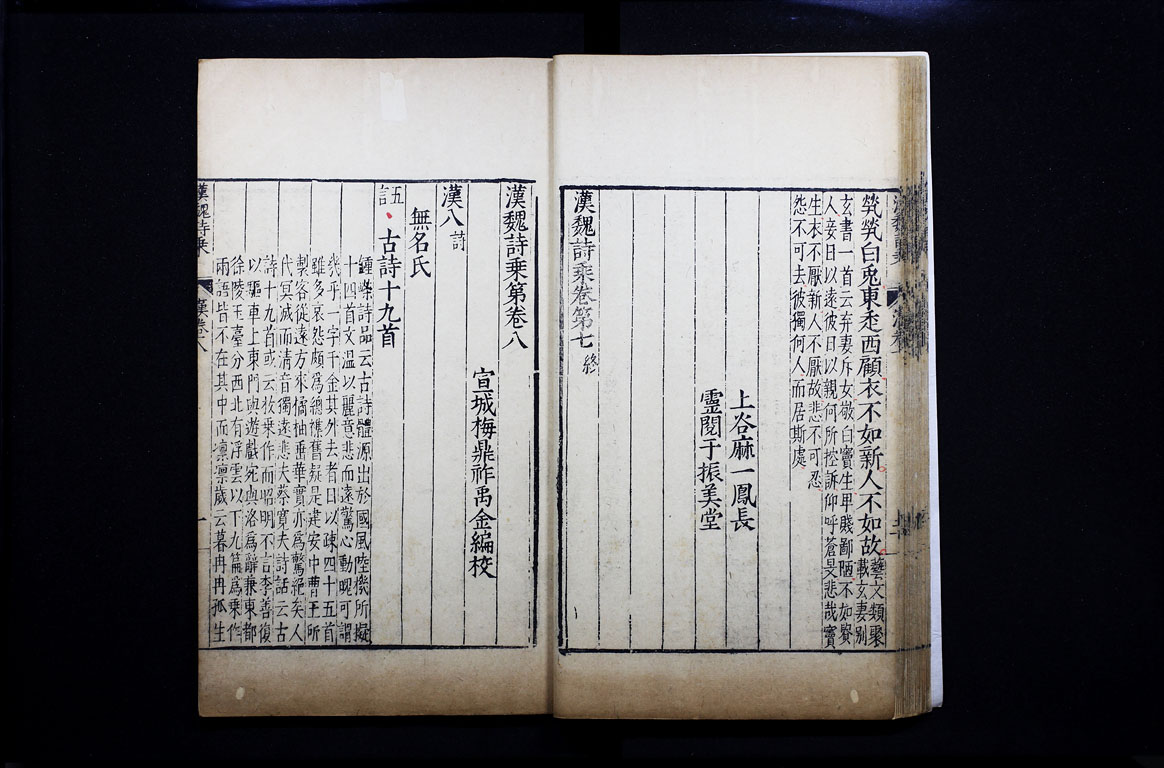 煢煢白兎東走西顧衣不如新人不如故
藝文類聚
載玄妻别
玄書一首云弃妻斥女敬白竇生卑賤鄙陋不如賢
人妾日以遠彼日以親何所控訴仰呼蒼旻悲哉竇
生衣不厭新人不厭故悲不可忍
怨不可去彼獨何人而居斯處
上谷麻一鳳長
靈閱于振美堂
漢魏詩乗卷第七終
漢魏詩乗第卷八
宣城梅鼎祚禹金編校
漢八詩
無名氏
五言
古詩十九首
鍾嶸詩品云古詩體源出於國風陸機所擬
十四首文温以麗意悲而遠驚心動魄可謂
幾乎一字千金其外去者日以疎四十五首
雖多哀怨頗爲總襍舊疑是建安中曹王所
製客從遠方來橘柚垂華實亦爲驚絶矣人
代冥滅而清音獨遠悲夫蔡寛夫詩話云古
詩十九首或云枚乗作而昭明不言李善復
以驅車上東門與遊戲宛與洛爲辭兼東都
徐陵玉臺分西北有浮雲以下九篇爲乗作
兩語皆不在其中而凛凛歲云暮冉冉孤生
漢魏詩乗
漢卷八
一